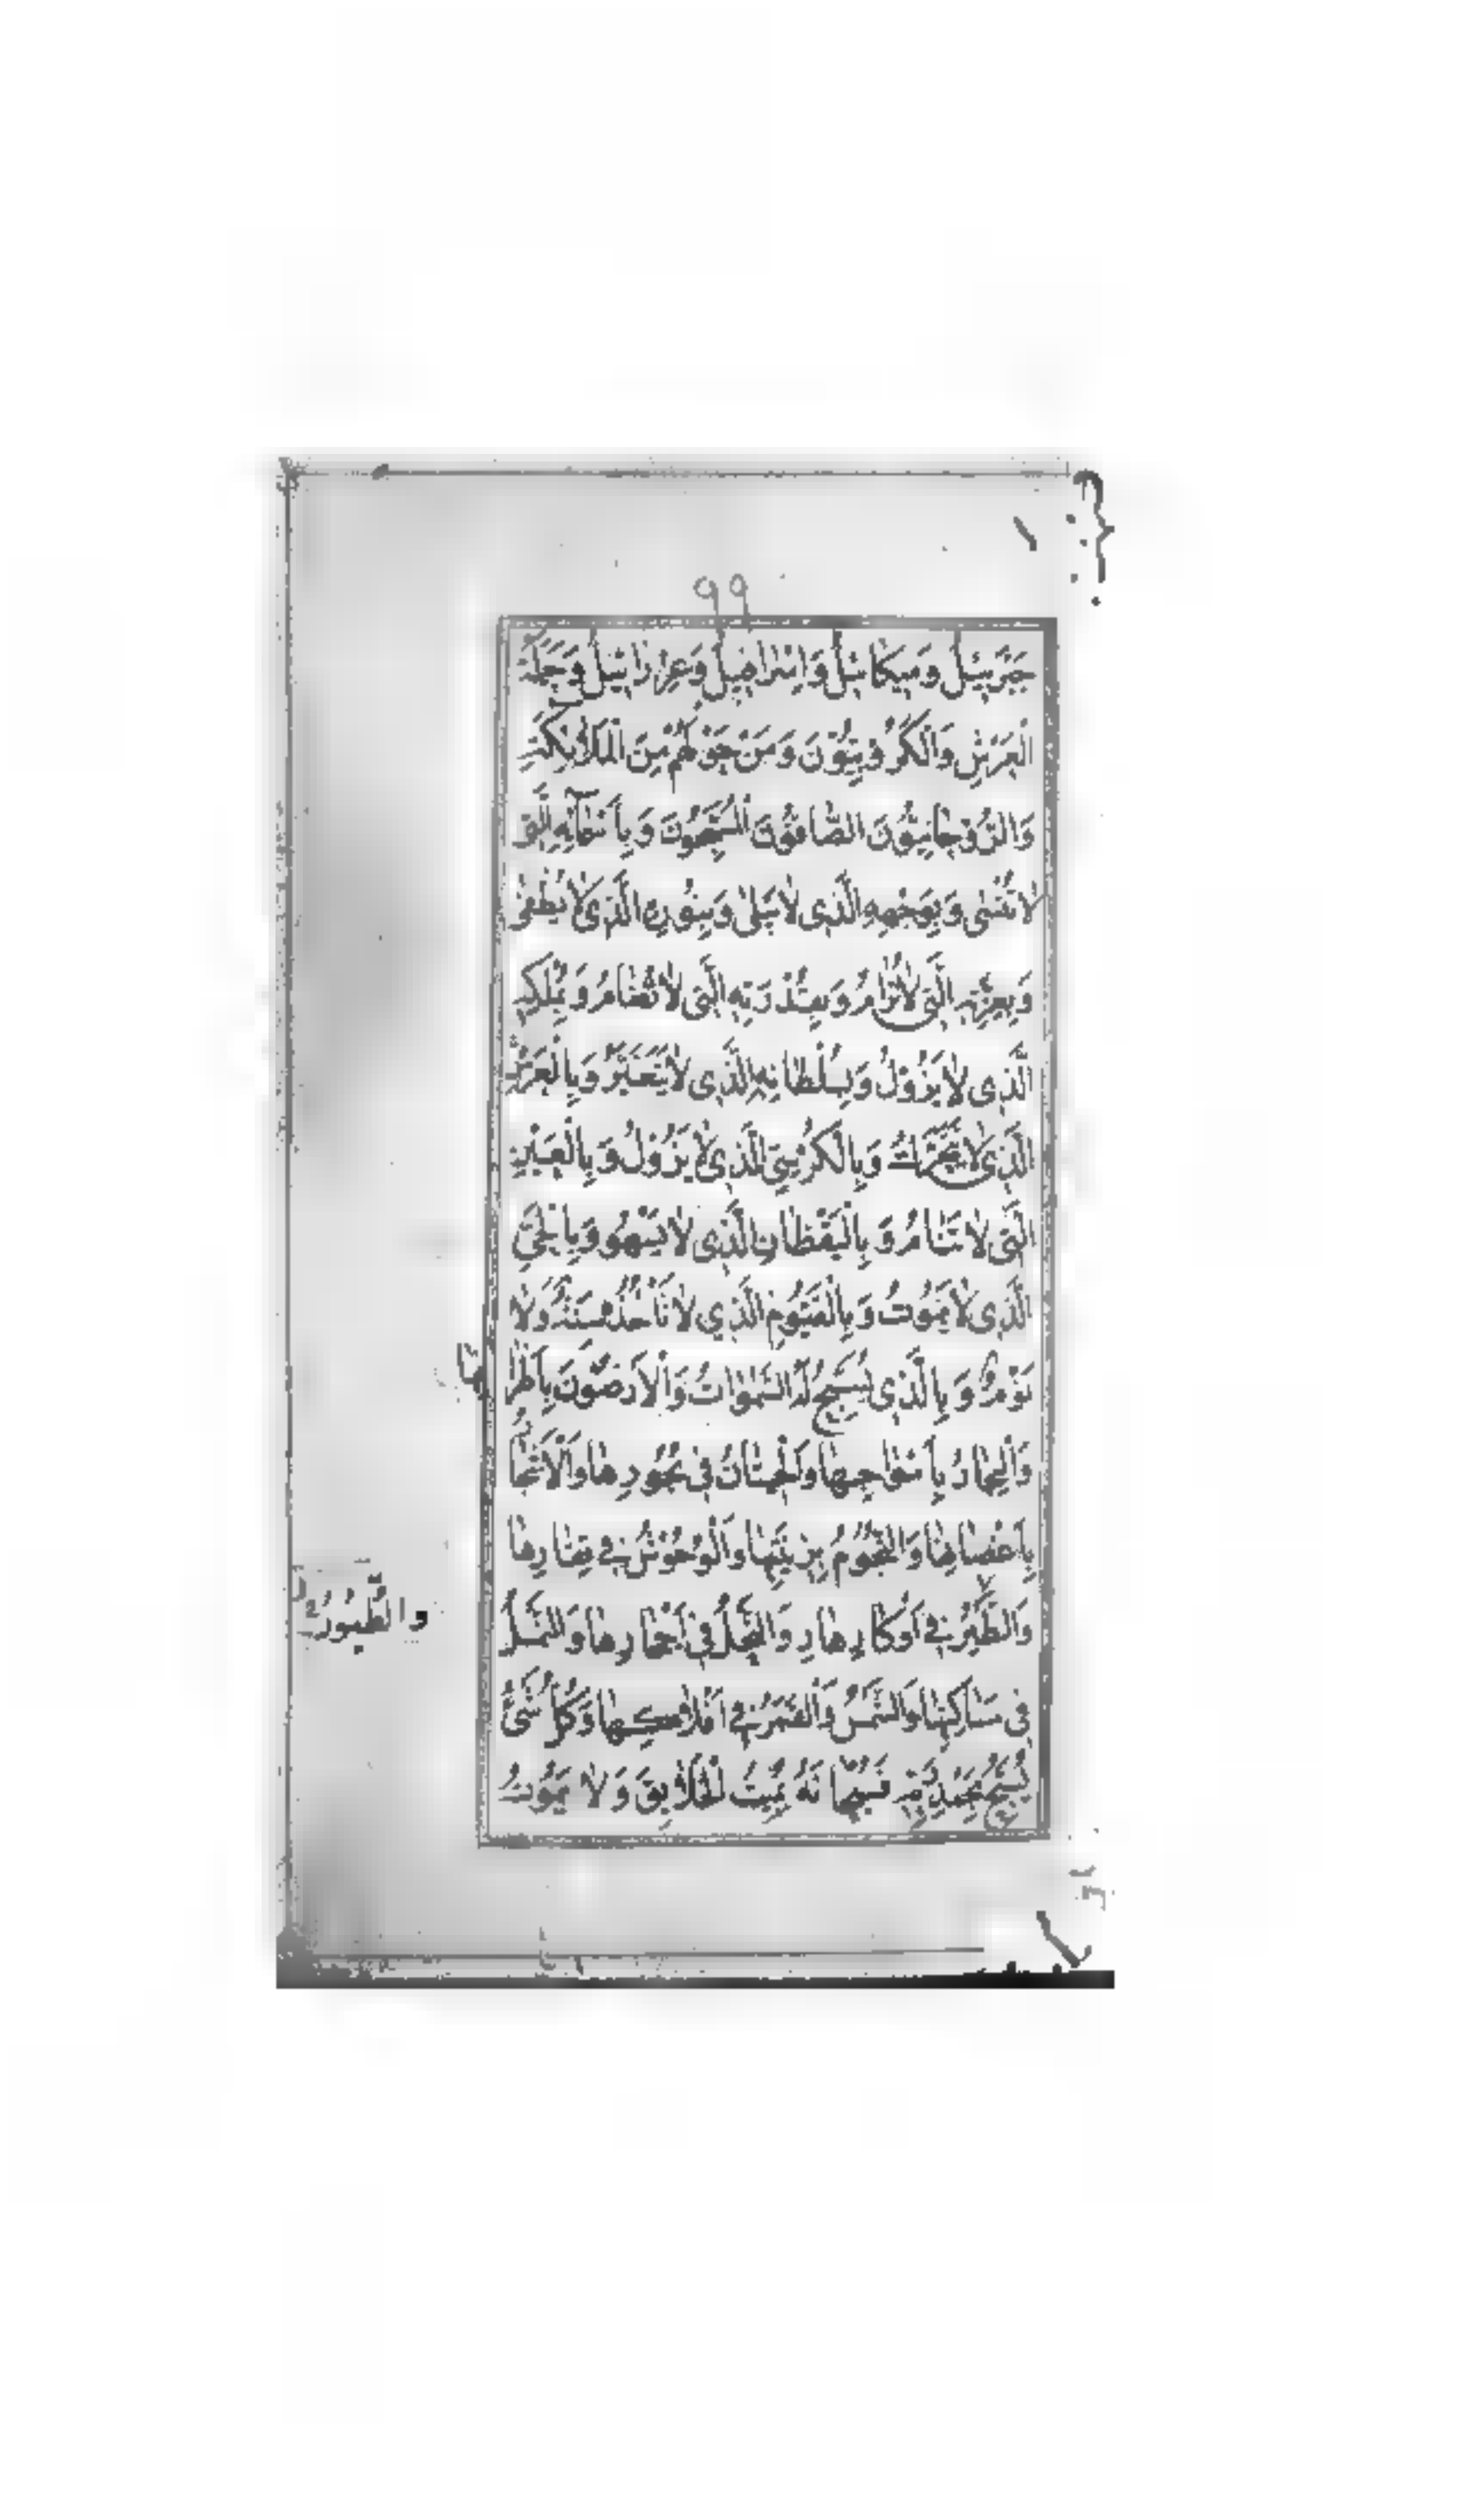 ٩٩
جَبْرَئِيلَ وَمِيكَائِيلَ وَاِسْرَافِيلَ وَعِزْرَائِيلَ وَحَمَلَةِ
الْعَرْشِ وَالْكَرُّوبِيُّوْنَ وَمَنْ حَوْلَهُمْ مِنَ الْمَلَائِكَةِ
وَالرُّوحَانِيُّوْنَ الصَّافُّوْنَ الْمُسَبِّحُوْنَ وَبِاَسْمَآئِهِ الَّتِى
لَا تُنْسٰى وَبِوَجْهِهِ الَّذِى لَا يَبْلٰى وَبِنُورِهِ الَّذِى لَا يُطْفٰى
وَبِعِزَّتِهِ الَّتِى لَا تُرَامُ وَبِقُدْرَتِهِ الَّتِى لَا تُضَامُ وَبِمُلْكِهِ
الَّذِى لَا يَزُوْلُ وَبِسُلْطَانِهِ الَّذِى لَا يَتَغَيَّرُ وَبِالْعَرْشِ
الَّذِى لَا يَتَحَرَّكُ وَبِالْكُرْسِىِّ الَّذِى لَا يَزُوْلُ وَبِالْعَيْنِ
الَّتِى لَا تَنَامُ وَبِالْيَقْظَانِ الَّذِى لَا يَسْهُو وَبِالْحَىِّ
الَّذِى لَا يَمُوْتُ وَبِالْقَيُّوْمِ الَّذِي لَا تَأْخُذُهُ سِنَةٌ وَلَا
نَوْمٌ وَبِالَّذِى يُسَبِّحُ لَهُ السَّمٰوَاتُ وَالْاَرَضُوْنَ بِاَطْرَا
فِهَا
وَالْبِحَارُ بِاَمْوَاجِهَا وَالْحِيتَانُ فِى بُحُورِهَا وَالْاَشْجَارُ
بِاَغْصَانِهَا وَالنُّجُوْمُ بِزِينَتِهَا وَالْوُحُوْشُ فِى قِفَارِهَا
وَالطَّيْرُ فِى اَوْكَارِهَا وَالنَّحْلُ فِى اَحْجَارِهَا وَالنَّمْلُ
والطُّيُورُ
فِى مَسَاكِنِهَا وَالشَّمْسُ وَالْقَمَرُ فِى اَفْلَاكِهَا وَكُلُّ شَىْءٍ
يُسَبِّحُ بِحَمْدِ رَبِّهِ فَسُبْحَانَهُ يُمِيتُ الْخَلَائِقَ وَلَا يَمُوْتُ